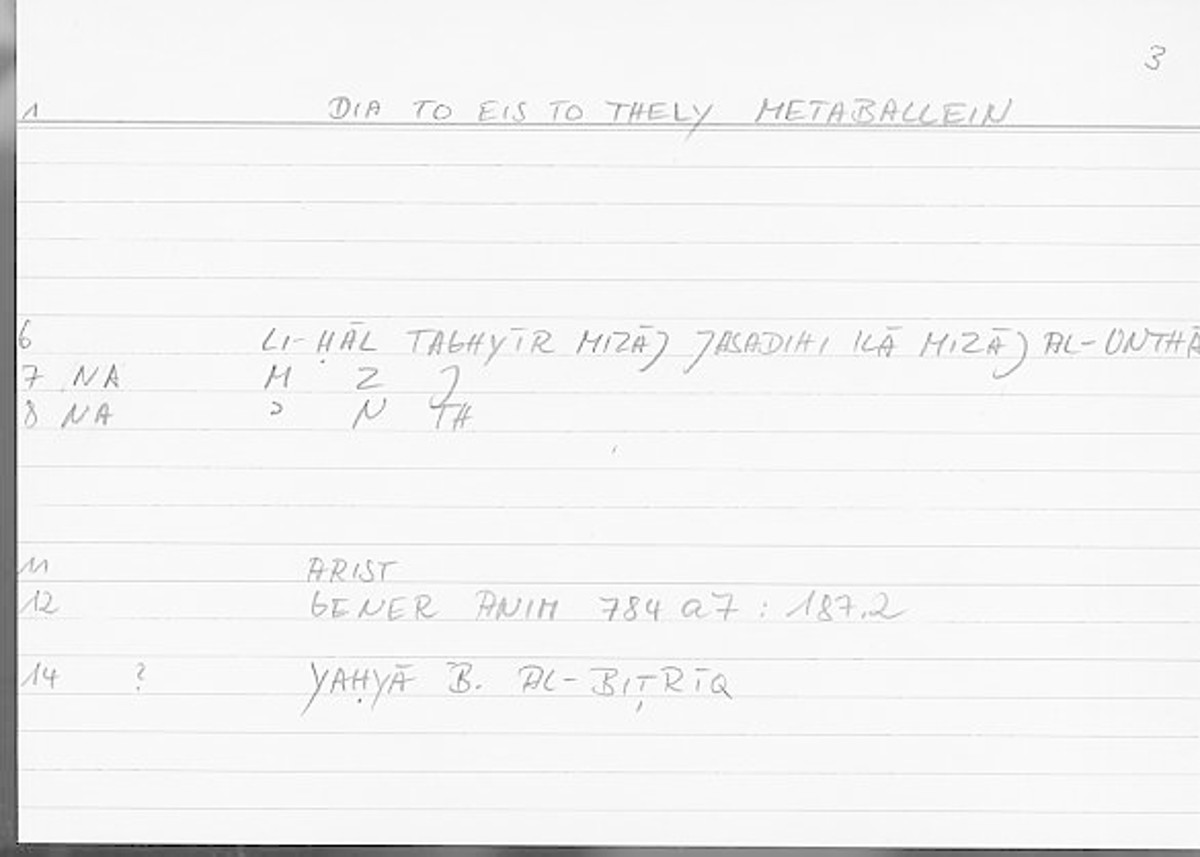 3
1 DIA TO EIS TO THELY METABALLEIN
6 LI-ḤĀL TAGHYĪR MIZĀJ JASADIHI ILĀ MIZĀJ AL-UNTHĀ
7 NA M Z J
8 NA ʾ N TH
11 ARIST
12 GENER ANIM 784 a7 : 187.2
14 ? YAḤYĀ B. AL-BIṬRĪQ